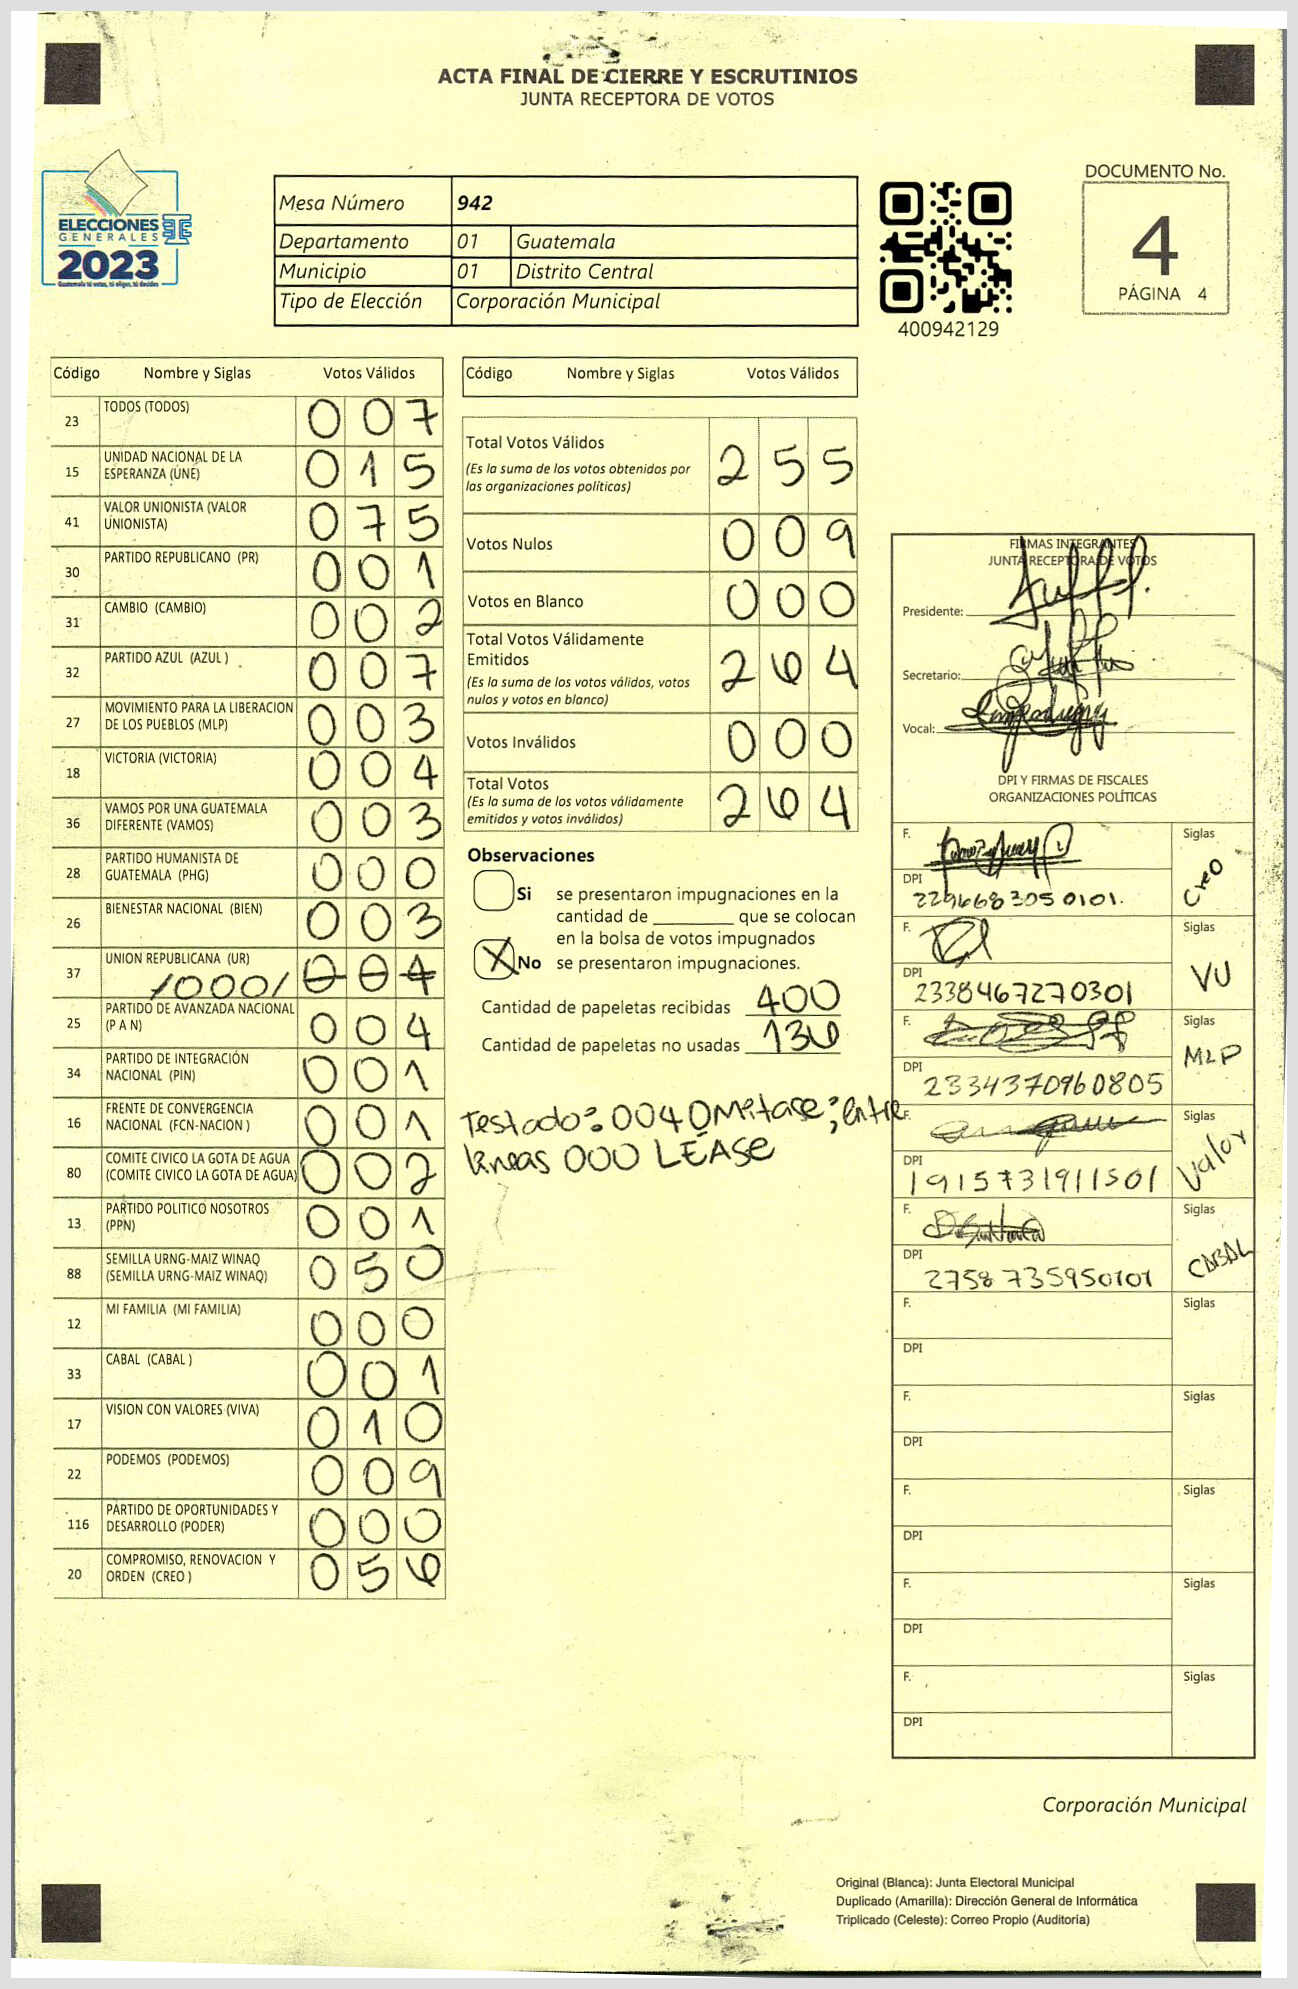 ACTA FINAL DE CIERRE Y ESCRUTINIOS
JUNTA RECEPTORA DE VOTOS
ELECCIONES
GENERALES
2023
Guatemala tú votas, tú eliges, tú decides
Mesa Número 942
Departamento 01 Guatemala
Municipio 01 Distrito Central
Tipo de Elección Corporación Municipal
400942129
DOCUMENTO No.
4
PÁGINA 4
Código Nombre y Siglas Votos Válidos
23 TODOS (TODOS) 0 0 7
15 UNIDAD NACIONAL DE LA
ESPERANZA (UNE) 0 1 5
41 VALOR UNIONISTA (VALOR
UNIONISTA) 0 7 5
30 PARTIDO REPUBLICANO (PR) 0 0 1
31 CAMBIO (CAMBIO) 0 0 2
32 PARTIDO AZUL (AZUL ) 0 0 7
27 MOVIMIENTO PARA LA LIBERACION
DE LOS PUEBLOS (MLP) 0 0 3
18 VICTORIA (VICTORIA) 0 0 4
36 VAMOS POR UNA GUATEMALA
DIFERENTE (VAMOS) 0 0 3
28 PARTIDO HUMANISTA DE
GUATEMALA (PHG) 0 0 0
26 BIENESTAR NACIONAL (BIEN) 0 0 3
37 UNION REPUBLICANA (UR) 0 0 4
/000/
25 PARTIDO DE AVANZADA NACIONAL
(P A N) 0 0 4
34 PARTIDO DE INTEGRACIÓN
NACIONAL (PIN) 0 0 1
16 FRENTE DE CONVERGENCIA
NACIONAL (FCN-NACION ) 0 0 1
80 COMITE CIVICO LA GOTA DE AGUA
(COMITE CIVICO LA GOTA DE AGUA) 0 0 2
13 PARTIDO POLITICO NOSOTROS
(PPN) 0 0 1
88 SEMILLA URNG-MAIZ WINAQ
(SEMILLA URNG-MAIZ WINAQ) 0 5 0
12 MI FAMILIA (MI FAMILIA) 0 0 0
33 CABAL (CABAL ) 0 0 1
17 VISION CON VALORES (VIVA) 0 1 0
22 PODEMOS (PODEMOS) 0 0 9
116 PARTIDO DE OPORTUNIDADES Y
DESARROLLO (PODER) 0 0 0
20 COMPROMISO, RENOVACION Y
ORDEN (CREO ) 0 5 6
Código Nombre y Siglas Votos Válidos
Total Votos Válidos 2 5 5
(Es la suma de los votos obtenidos por
las organizaciones políticas)
Votos Nulos 0 0 9
Votos en Blanco 0 0 0
Total Votos Válidamente
Emitidos 2 6 4
(Es la suma de los votos válidos, votos
nulos y votos en blanco)
Votos Inválidos 0 0 0
Total Votos 2 6 4
(Es la suma de los votos válidamente
emitidos y votos inválidos)
Observaciones
Si se presentaron impugnaciones en la
cantidad de ________ que se colocan
en la bolsa de votos impugnados
X No se presentaron impugnaciones.
Cantidad de papeletas recibidas 400
Cantidad de papeletas no usadas 136
Testado: 004 OMitase; Entre
lineas 000 LEASE
FIRMAS INTEGRANTES
JUNTA RECEPTORA DE VOTOS
Presidente:
Secretario:
Vocal:
DPI Y FIRMAS DE FISCALES
ORGANIZACIONES POLÍTICAS
F. Siglas
DPI 2296683050101. Creo
F. Siglas
DPI 2338467270301 VU
F. Siglas
DPI 2334370960805 MLP
F. Siglas
DPI 1915731911501 Valor
F. Siglas
DPI 2758735950101 CABAL
F. Siglas
DPI
F. Siglas
DPI
F. Siglas
DPI
F. Siglas
DPI
F. Siglas
DPI
Corporación Municipal
Original (Blanca): Junta Electoral Municipal
Duplicado (Amarilla): Dirección General de Informática
Triplicado (Celeste): Correo Propio (Auditoría)